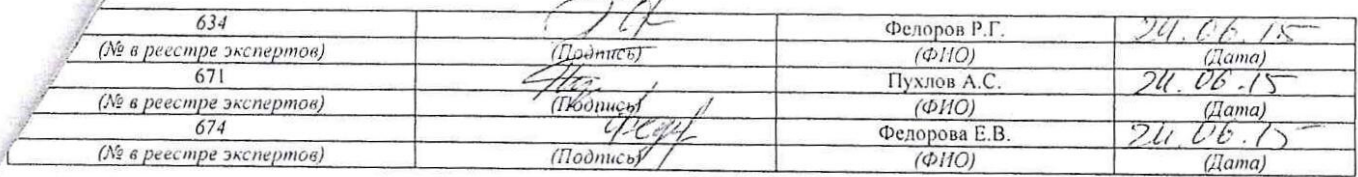 634 Федоров Р.Г. 24.06.15
(№ в реестре экспертов) (Подпись) (ФИО) (Дата)
671 Пухлов А.С. 24.06.15
(№ в реестре экспертов) (Подпись) (ФИО) (Дата)
674 Федорова Е.В. 24.06.15
(№ в реестре экспертов) (Подпись) (ФИО) (Дата)